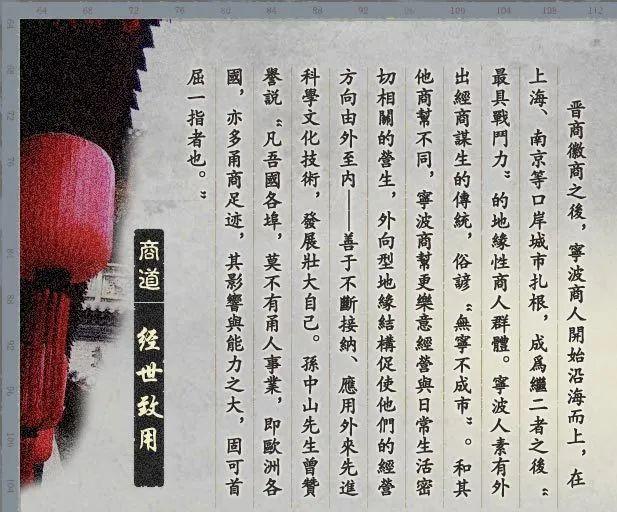 晋商徽商之後，寧波商人開始沿海而上，在
上海、南京等口岸城市扎根，成爲繼二者之後“
最具戰鬥力”的地緣性商人群體。寧波人素有外
出經商謀生的傳統，俗諺“無寧不成市”。和其
他商幫不同，寧波商幫更樂意經營與日常生活密
切相關的營生，外向型地緣結構促使他們的經營
方向由外至内——善于不斷接納、應用外來先進
科學文化技術，發展壯大自己。孫中山先生曾贊
譽説“凡吾國各埠，莫不有甬人事業，即歐洲各
國，亦多甬商足迹，其影響與能力之大，固可首
屈一指者也。”
商道
经世致用